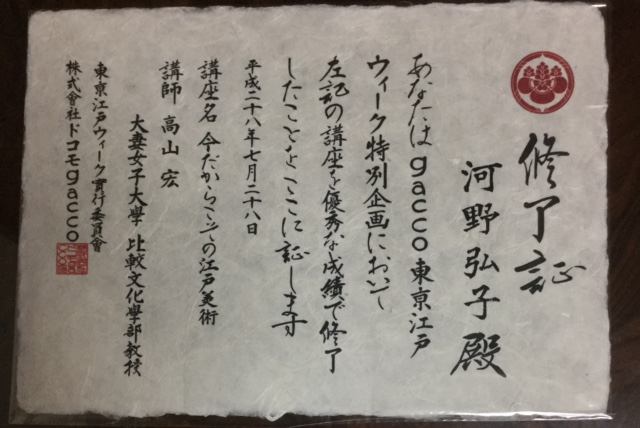 修了証
河野弘子殿
あなたはgacco東京江戸
ウィーク特別企画において
左記の講座を優秀な成績で修了
したことをここに証します
平成二十八年七月二十八日
講座名 今だからこその江戸美術
講師 高山宏
大妻女子大學 比較文化學部教授
東京江戸ウィーク實行委員會
株式會社ドコモgacco